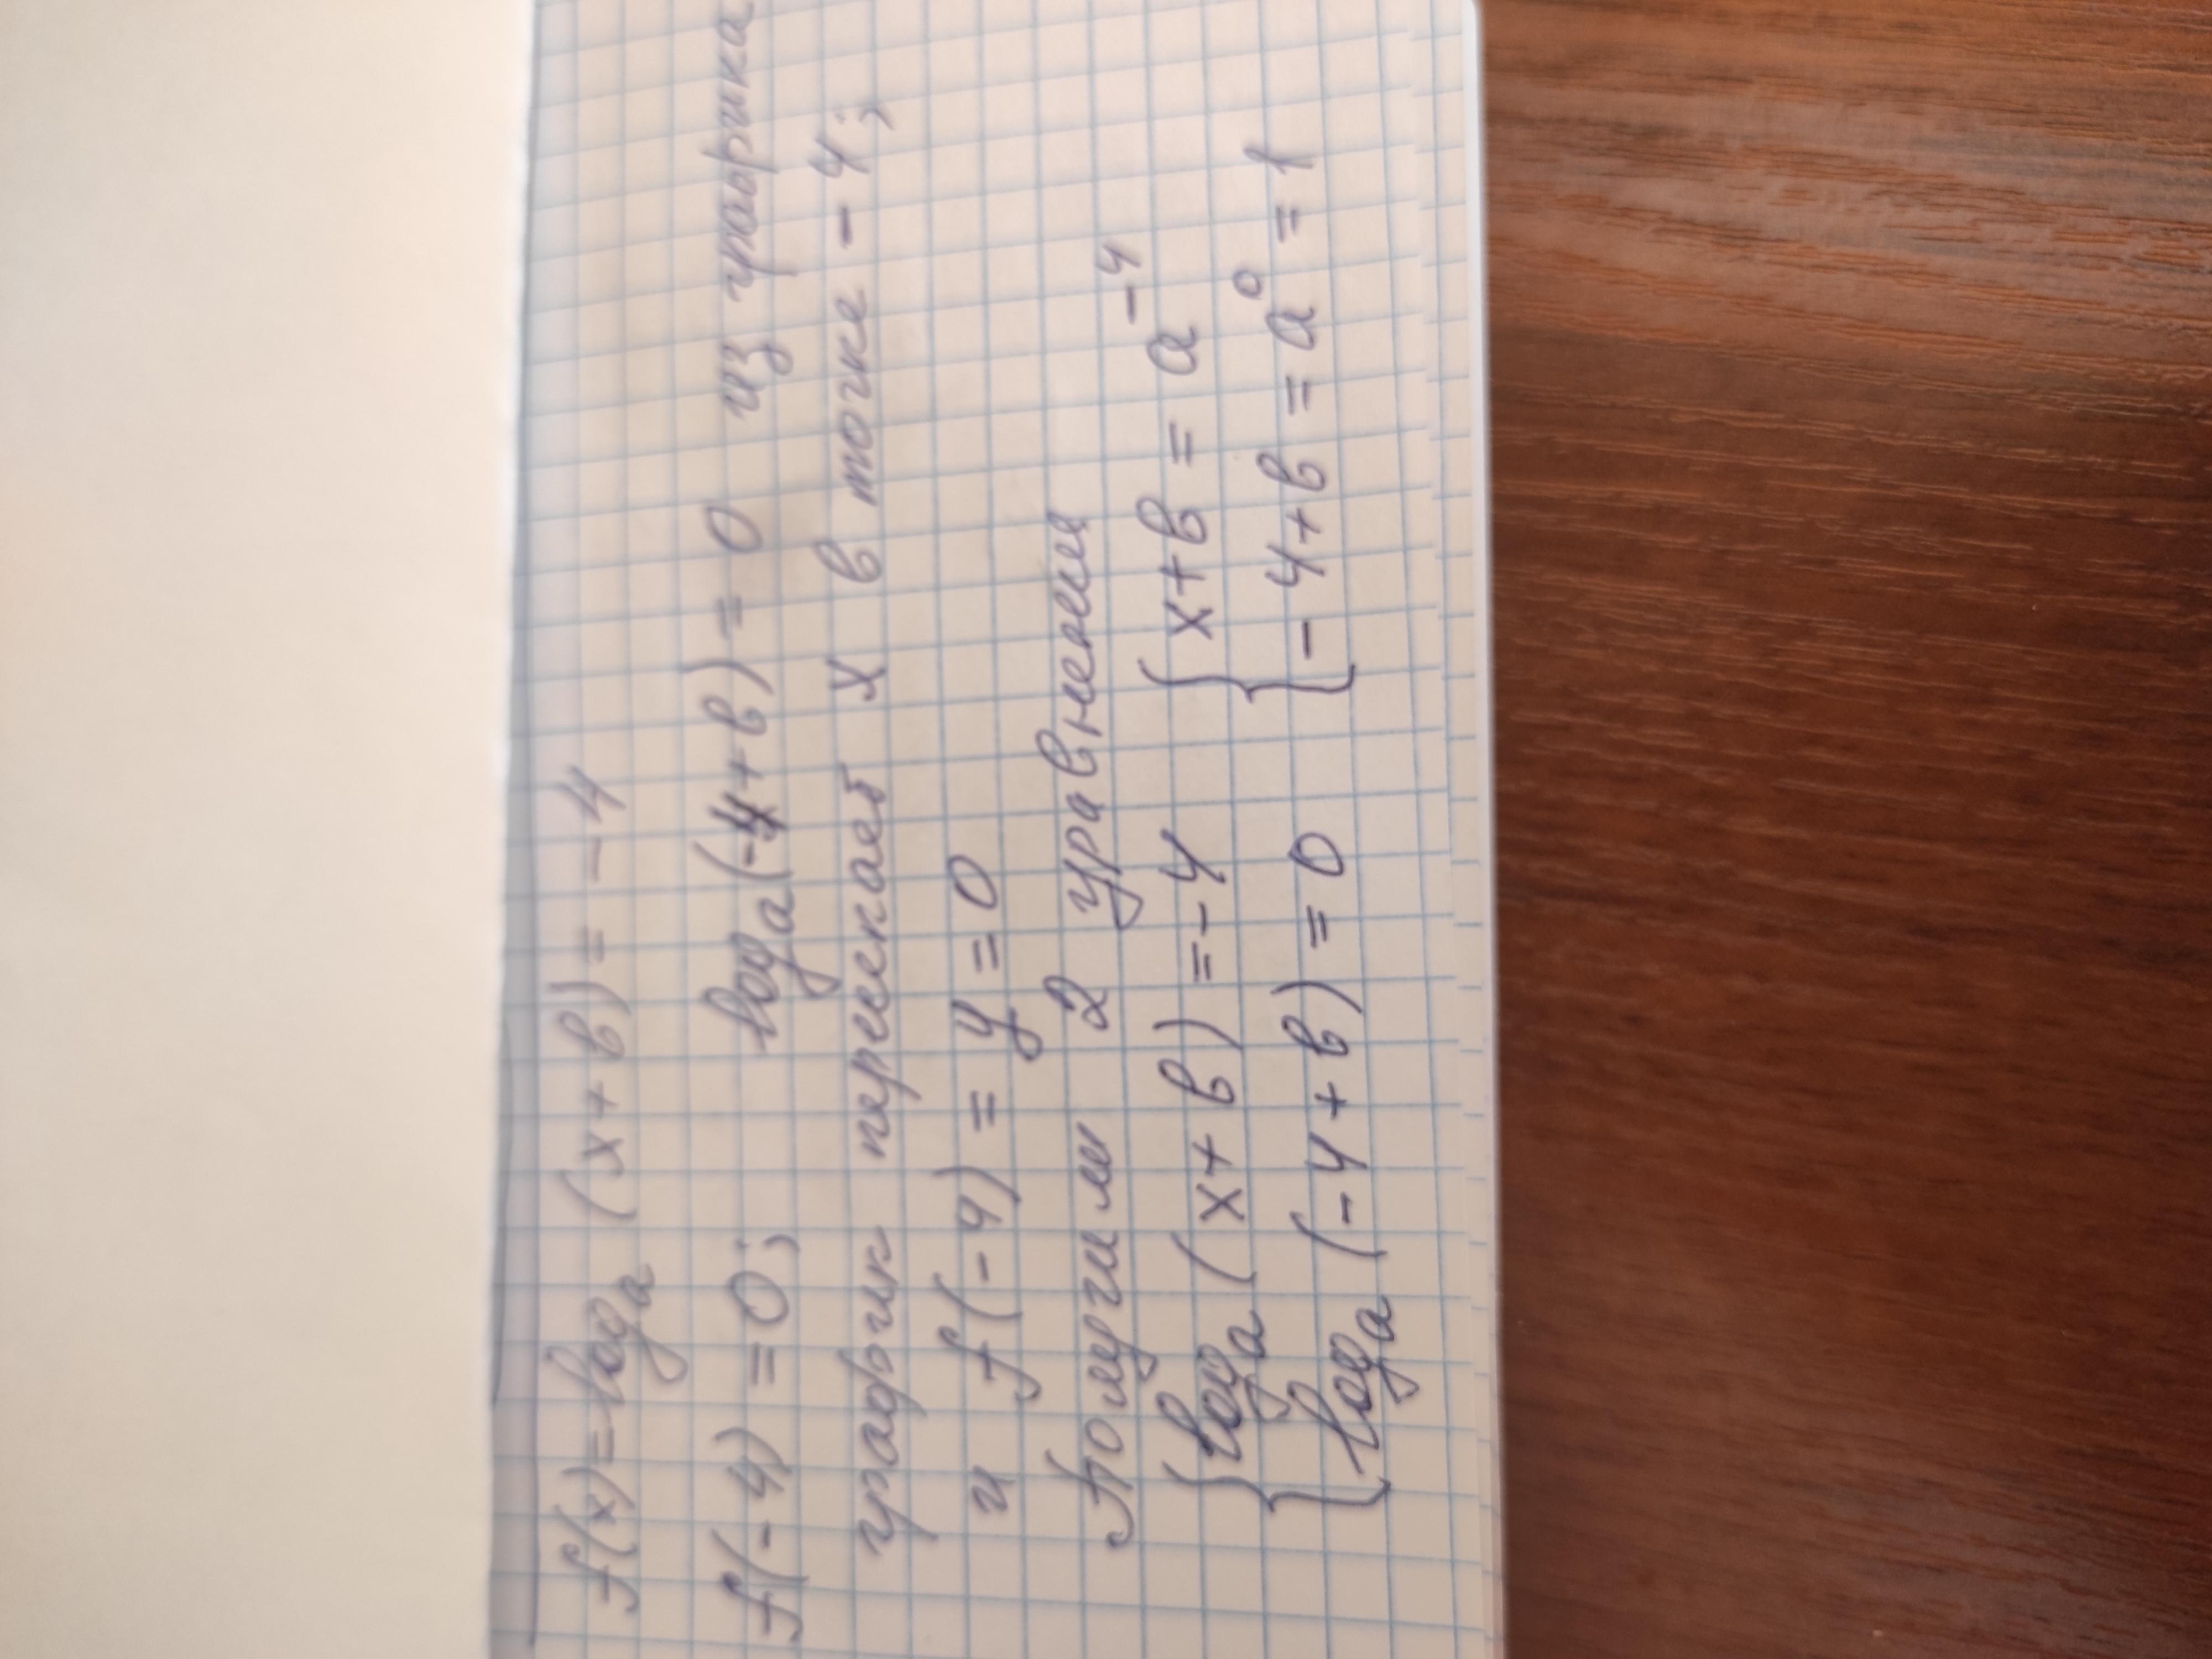 f(x)=logₐ (x+в) = -4
f(-4) = 0; logₐ(-4+в) = 0 из графика
график пересекает x в точке -4;
и f(-4) = y = 0
Получим 2 уравнения
{logₐ(x+в)=-4 {x+в = a⁻⁴
{logₐ(-4+в)=0 {-4+в = a⁰ = 1